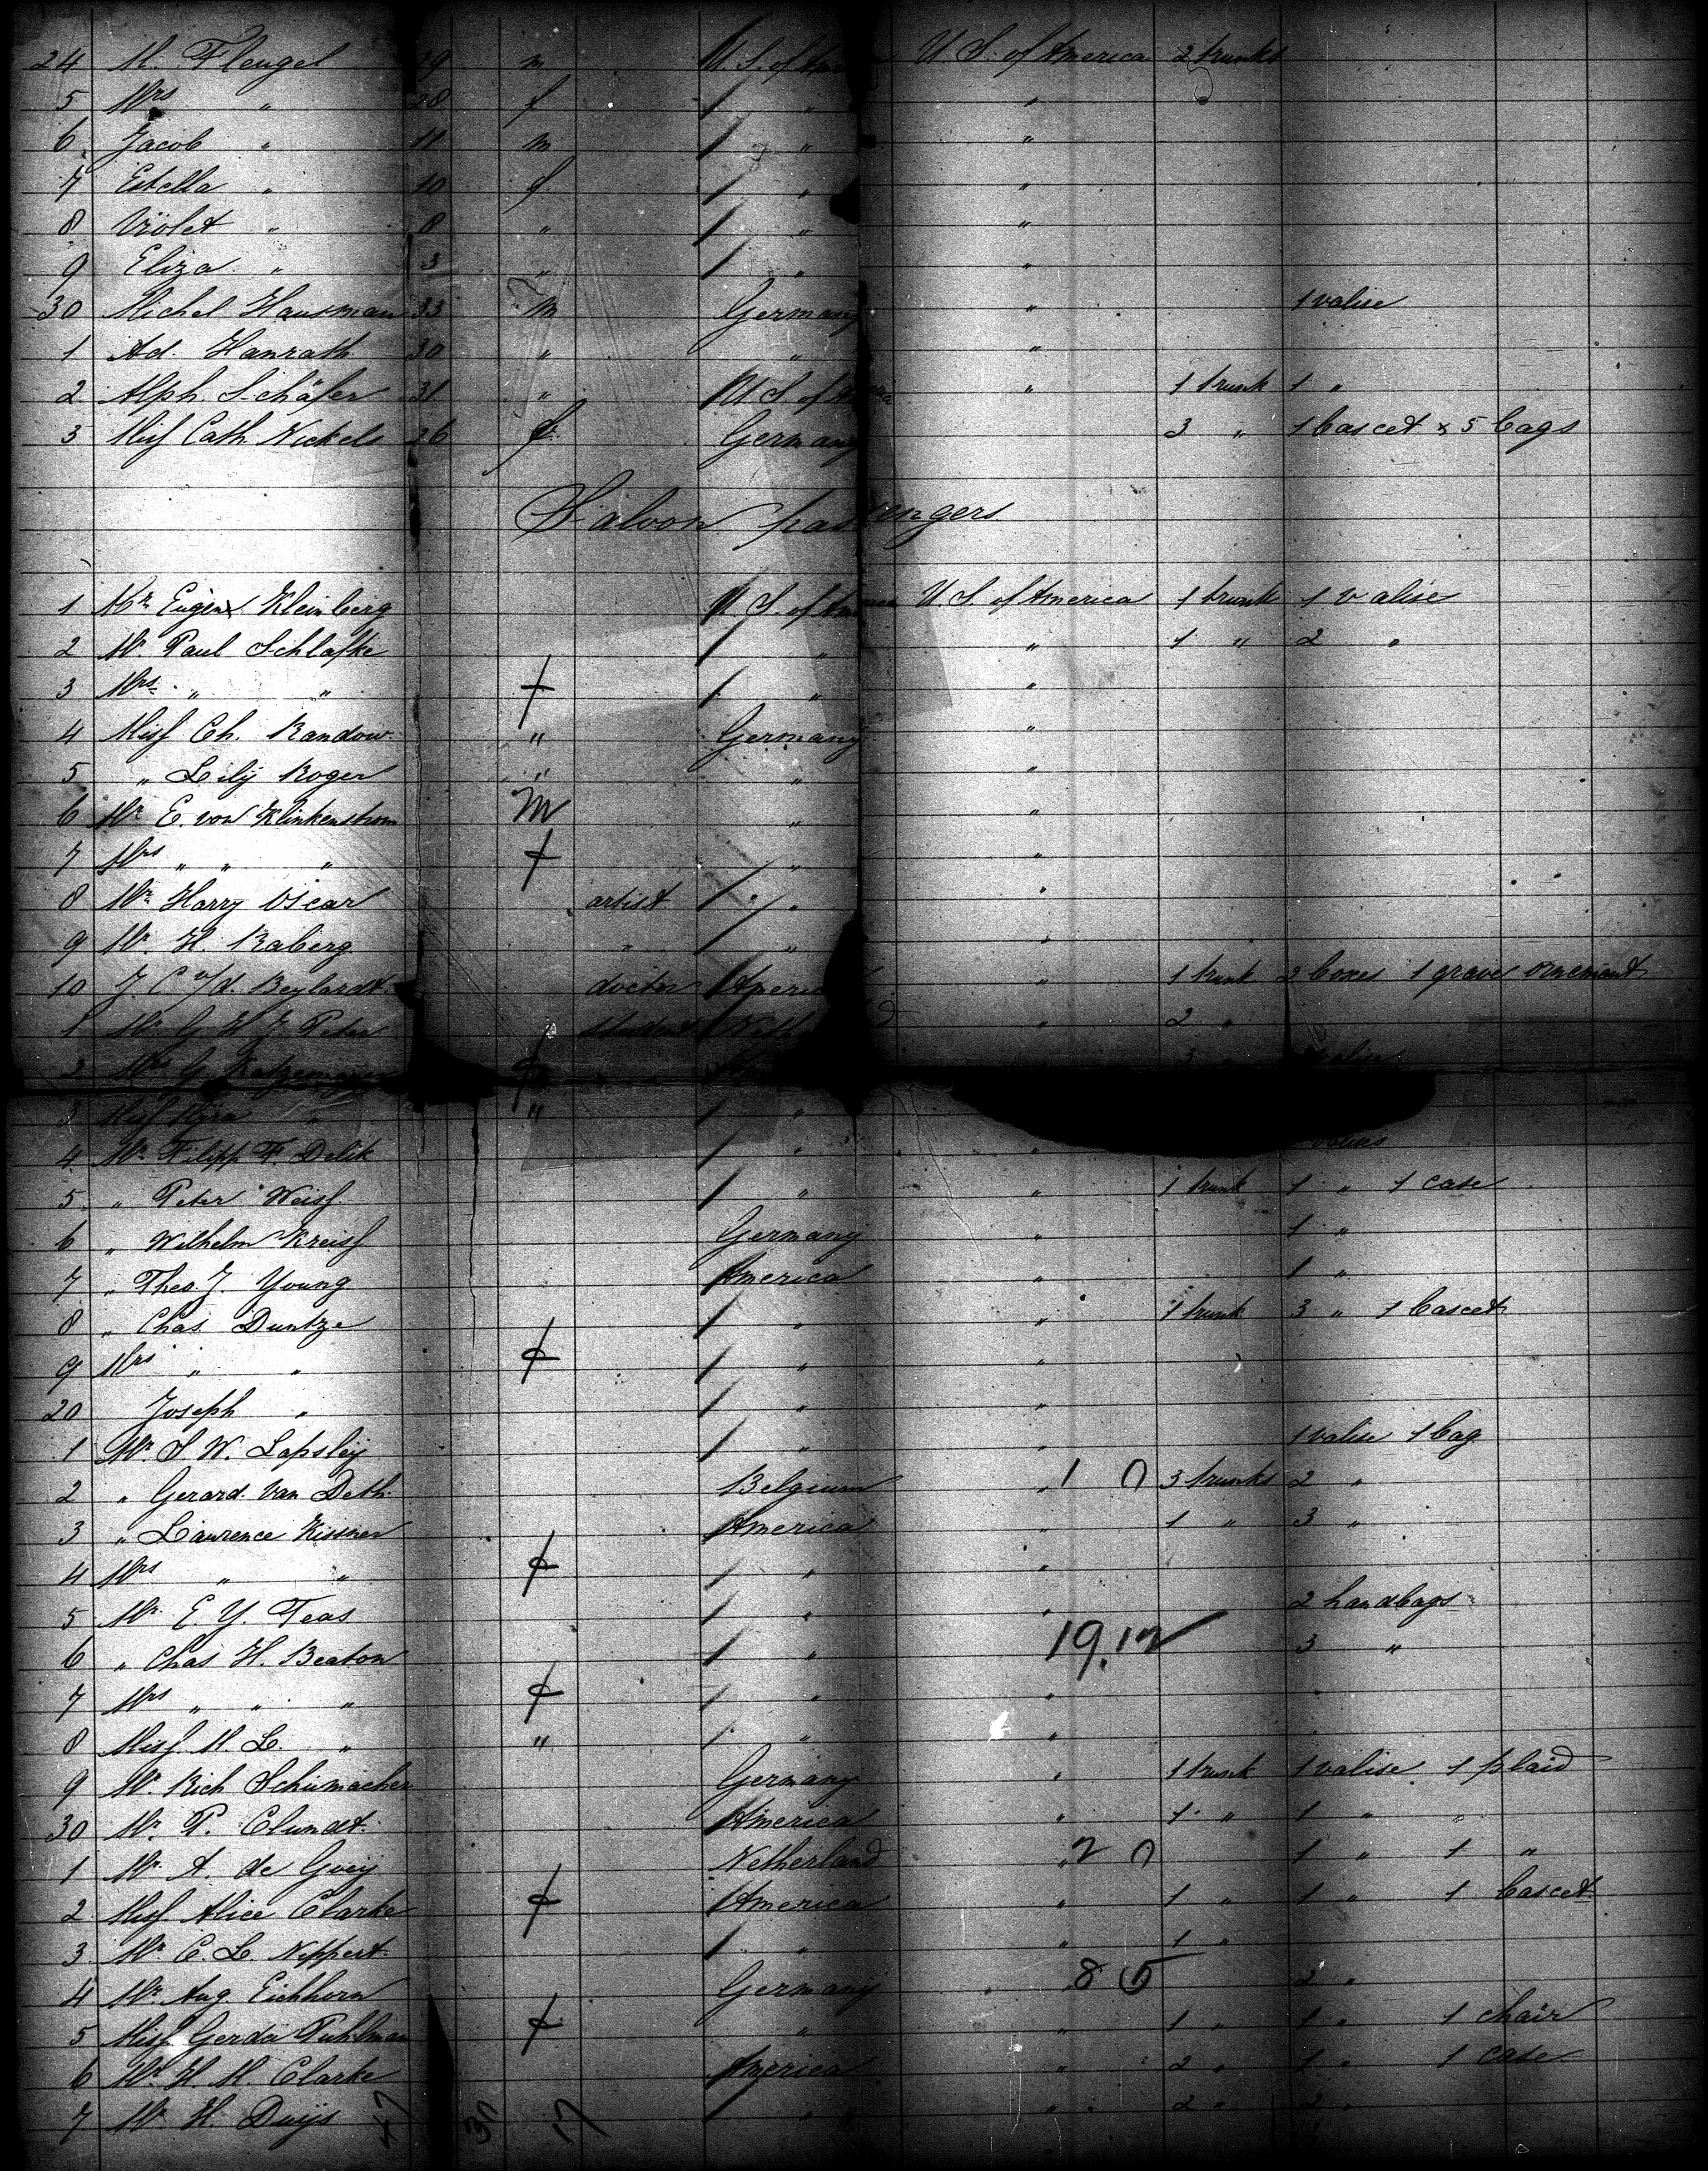 24 M. Flengel 29 m U. S. of Ame U. S. of America 2 trunks
5 Mrs " 28 f " "
6 Jacob " 11 m " "
7 Estella " 10 f " "
8 Violet " 8 " " "
9 Eliza " 3 " " "
30 Michel Hausman 33 m Germany " 1 valise
1 Ad. Hanrath 30 " " "
2 Alph. Schäfer 31 " U. S. of " 1 trunk 1 "
3 Miss Cath. Nickels 26 f. Germany 3 " 1 bascet & 5 bags
Saloon passengers
1 Mr. Eugen Kleinberg U. S. of America U. S. of America 1 trunk 1 valise
2 Mr Paul Schlafke " " 1 " 2 "
3 Mrs. " " f " "
4 Miss Ch. Randow " Germany "
5 " Lily Roger " " "
6 Mr E. von Klinkenstrom m " "
7 Mrs " " " f " "
8 Mr Harry Oscar artist " "
9 Mr. H. Raberg " " "
10 J. C. v/d. Beylardt doctor America " 1 trunk 2 boxes 1 grave ornement
1 Mr G. H. J. Peter student Neth " 2 "
2 Mrs G. Katzemann f 3 " valise
3 Miss " " "
4 Mr. Filipp F. Delik " "
5 " Peter Weiss " " 1 trunk 1 " 1 case
6 " Wilhelm Kreiss Germany " 1 "
7 " Theo J. Young America " 1 "
8 " Chas Duntze " " 1 trunk 3 " 1 bascet
9 Mrs " " f " "
20 Joseph " " "
1 Mr. S. W. Lapsley " " 1 valise 1 bag
2 " Gerard van Deth. Belgium " 1 0 3 trunks 2 "
3 " Laurence Kissner America " 1 " 3 "
4 Mrs " " f " "
5 Mr. E. Y. Teas " " 2 handbags
6 " Chas H. Beaton " 19.17 3 "
7 Mrs " " " f " "
8 Miss M. L. " " " "
9 Mr. Rich Schumacher Germany " 1 trunk 1 valise 1 plaid
30 Mr. P. Clundt. America " 1 " 1 " "
1 Mr. A. de Goey Netherland " 2 0 1 " 1 "
2 Miss Alice Clarke f America " 1 " 1 " 1 bascet
3 Mr. C. L. Nippert. " " 1 "
4 Mr. Aug. Eichhorn Germany " 8 5 2 "
5 Miss Gerda Puhlman f " " 1 " 1 " 1 chair
6 Mr. H. M. Clarke America " 2 " 1 " 1 case
7 Mr. H. Duijs 47 30 17 " " 2 " 2 "